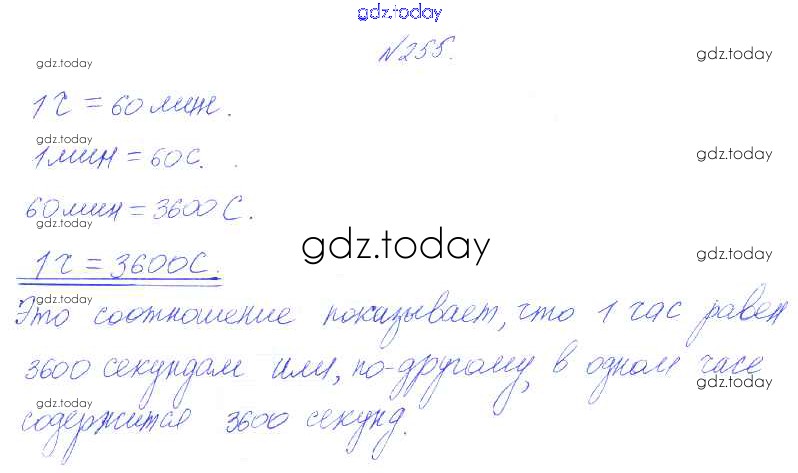 gdz.today
№255.
gdz.today
gdz.today
1 ч = 60 мин.
gdz.today
1 мин = 60 с.
gdz.today
60 мин = 3600 с.
gdz.today
gdz.today
gdz.today
1 ч = 3600 с.
gdz.today
gdz.today
Это соотношение показывает, что 1 час равен
3600 секундам или, по-другому, в одном часе
gdz.today
gdz.today
содержится 3600 секунд.